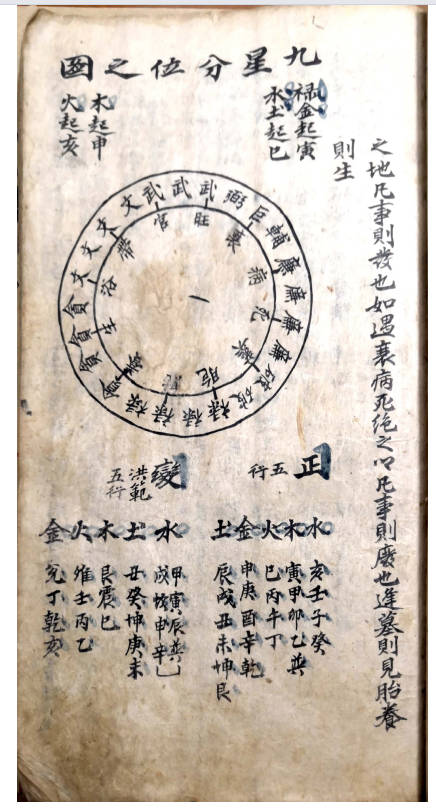 之地凡事則發也如遇衰病死絕之以凡事則廢也逢墓則見胎養
則生
九星分位之圖
禄金起寅
水土起巳
木起申
火起亥
武武武弼巨輔廉廉廉廉破破禄禄禄禄貪貪貪貪文文文文
官旺衰病死墓胞胎養生浴帶
正五行
水亥壬子癸
木寅甲卯乙巽
火巳丙午丁
金申庚酉辛乾
土辰戌丑未坤艮
變洪範五行
水甲寅辰巽戌坎申辛
土丑癸坤庚未
木艮震巳
火離壬丙乙
金兌丁乾亥